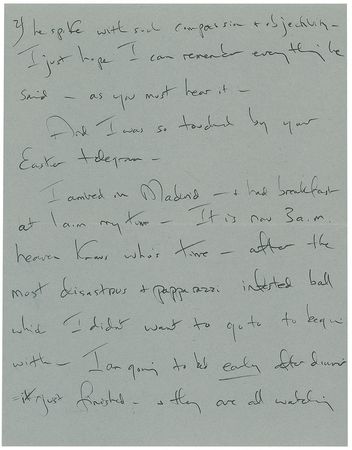 2/ he spoke with such compassion + objectivity -
I just hope I can remember everything he
said - as you must hear it -
And I was so touched by your
Easter telegram -
I arrived in Madrid - + had breakfast
at 1 a.m. my time - It is now 3 a.m.
heaven knows who's time - after the
most disastrous + papparazzi infested ball
which I didn't want to go to to begin
with - I am going to bed early after dinner
just finished - + they are all watching